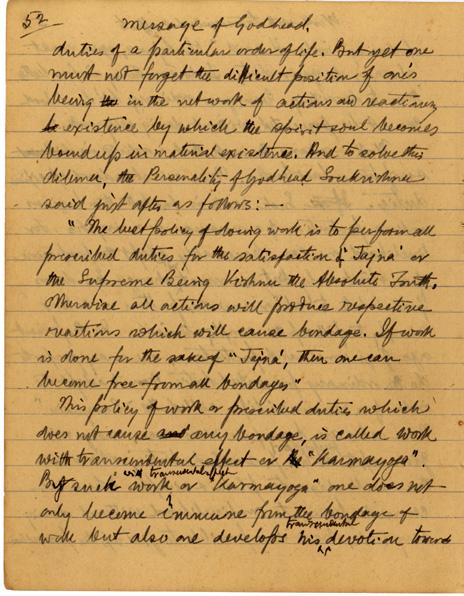 52
Message of Godhead.
duties of a particular order of life. But yet one
must not forget the difficult position of one's
being in the network of actions and reactions
existence by which the spirit soul becomes
bound up in material existence. And to solve this
dilema, the Personality of Godhead Sreekrishna
said just after as follows:—
"The best policy of doing work is to perform all
prescribed duties for the satisfaction of 'Jajna' or
the Supreme Being Vishnu the Absolute Truth.
Otherwise all actions will produce respective
reactions which will cause bondage. If work
is done for the sake of "Jajna', then one can
become free from all bondages"
This policy of work or prescribed duties which
does not cause any bondage, is called work
with transcendental effect or "Karmayoga".
By such work or "Karmayoga" one does not
only become immune from the bondage of
transcendental
work but also one develops his devotion towards